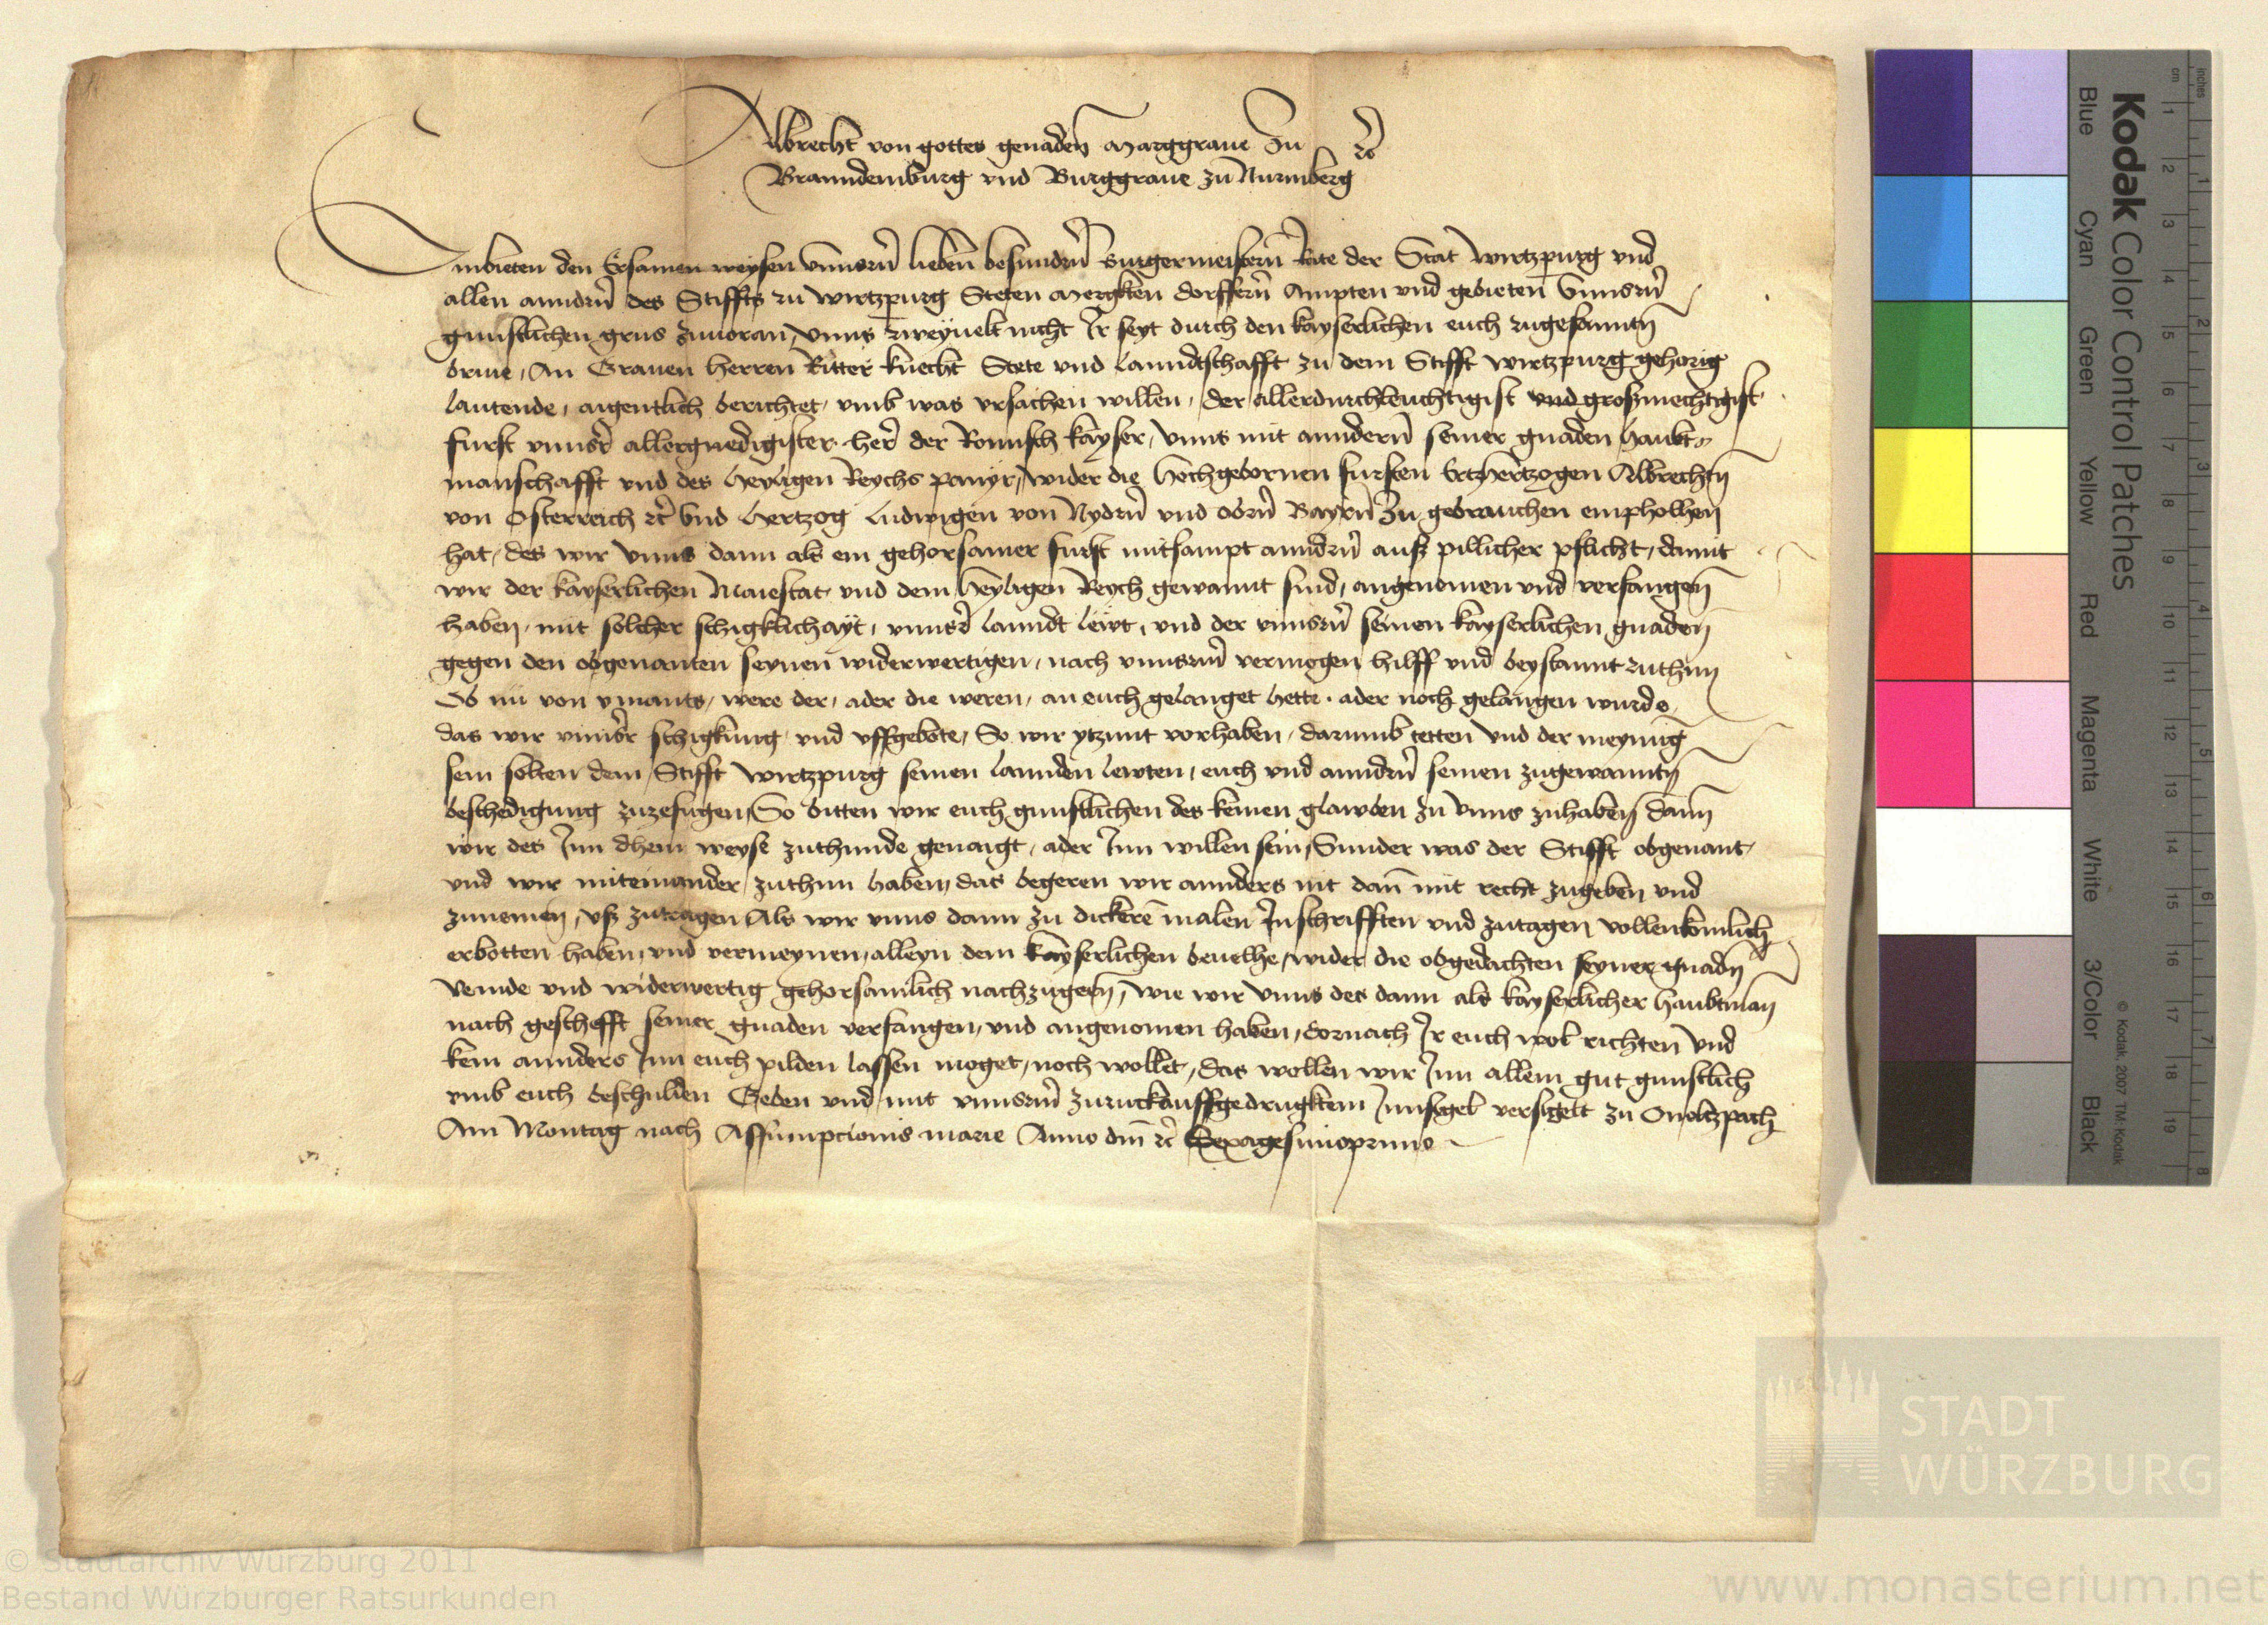 Albrecht von gottes genaden Marggraue zu
Branndemburg vnd Burggraue zu Nurmberg rc
Embieten den Ersamen weysen vnnsern lieben besundern Burgermeistern Rate der Stat wirtzpurg vnd
allen anndern des Stiffts zu wirtzpurg Steten Mergkten dorffern Ampten vnd gebieten vnnsern
gunstlichen grus zuuoran, vnns zweyuelt nicht Ir seyt durch den kayserlichen euch zugesannten
briue, An Grauen herren Ritter knecht Stete vnd lanndtschafft zu dem Stifft wirtzpurg gehorig
lautende, aigentlich berichtet, vmb was vrsachen willen, der allerdurchleuchtigist vnd großmechtigist
furst vnnser allergnedigister her der Romisch kayser, vnns mit anndern seiner gnaden haubt=
manschafft vnd des heyligen Reychs panyr, wider die hochgebornen fursten Ertzhertzogen Albrechten
von Osterreich rc vnd hertzog ludwigen von Nydern vnd obern Bayrn zu gebrauchen empholhen
hat, des wir vnns dann als ein gehorsamer furst mitsampt anndern auß pillicher pflicht, damit
wir der kayserlichen Maiestat vnd dem heyligen Reych gewannt sind, angenomen vnd verfangen
haben, mit solcher schigklichayt, vnnser lanndt lewt, vnd der vnnsern seinen kayserlichen gnaden
gegen den obgenanten seynen widerwertigen, nach vnnserm vermogen hilff vnd beystannt zuthun
Ob nu von ymants, were der, ader die weren, an euch gelanget hette, ader noch gelangen wurde,
das wir vnnser schigkung vnd vffgebote, So wir ytzunt vorhaben, darumb tetten vnd der meynung
sein solten dem Stifft wirtzpurg seinen lannden lewten, euch vnd anndern seinen zugewannten
beschedigung zuzefugen, So bitten wir euch gunstlichen des keinen glawben zu vnns zuhaben, dann
wir des Inn dhein weyse zuthunde genaigt, ader Inn willen sein, Sunder was der Stifft obgenant
vnd wir miteinander zuthun haben, das begeren wir annders nit dann mit recht zugeben vnd
zunemen, vß zutragen Als wir vnns dann zu dickere malen Inschrifften vnd zutagen vollenkomlich
erbotten haben, vnd vermeynen, alleyn dem kayserlichen beuelhe, wider die obgedachten seyner gnaden
veinde vnd widerwertig gehorsamlich nachzugeen, wie wir vnns des dann als kayserlicher haubtman
nach geschefft seiner gnaden verfangen, vnd angenomen haben, dornach Ir euch wol richten vnd
kein annders Inn euch pilden lassen moget, noch wollet, das wollen wir Inn allem gut gunstlich
vmb euch beschulden Geben vnd mit vnnserm zuruckauffgedrugktem Innsigel versigelt zu Onoltzpach
Am Montag nach Assumpcionis marie Anno dm rc Sexagesimoprimo
© Stadtarchiv Würzburg 2011
Bestand Würzburger Ratsurkunden
STADT
WÜRZBURG
www.monasterium.net
Kodak Color Control Patches
© Kodak, 2007 TM: Kodak
Blue Cyan Green Yellow Red Magenta White 3/Color Black
cm 1 2 3 4 5 6 7 8 9 10 11 12 13 14 15 16 17 18 19
inches 1 2 3 4 5 6 7 8